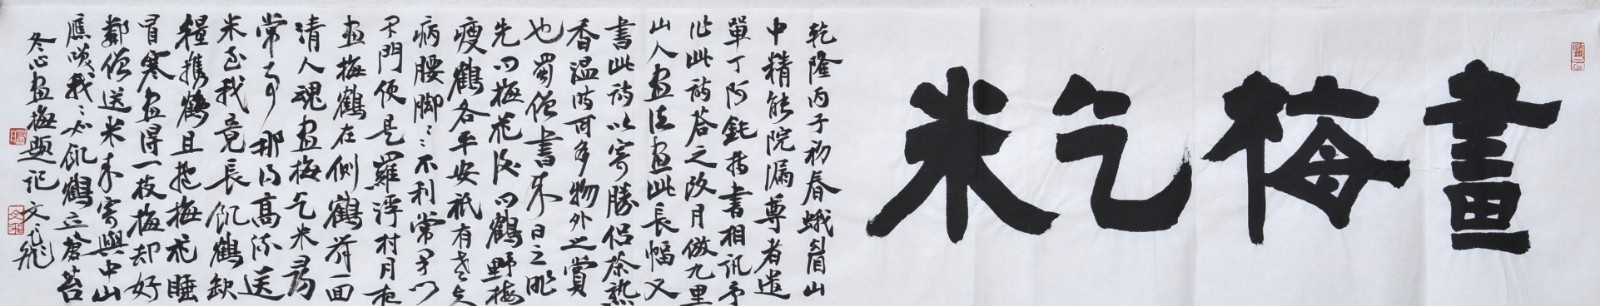 畫梅乞米
乾隆丙子初春蛾眉山
中精能院漏尊者遣
單丁阿鈍持書相訊予
作此詩答之改月倣九里
山人畫法畫此長幅又
書此詩以寄勝侶茶熟
香溫時可多物外之賞
也蜀僧書來日之昨
先問梅花後問鶴野梅
瘦鶴各平安祇有老夫
病腰脚腰脚不利常閉
門閉門便是羅浮村月夜
畫梅鶴在側鶴舞一回
清人魂畫梅乞米尋
常事那得高流送
米至我竟長飢鶴缺
糧攜鶴且抱梅花睡
冒寒畫得一枝梅却好
鄰僧送米來寄與中山
應笑我我如飢鶴立蒼苔
冬心畫梅題記 文飛